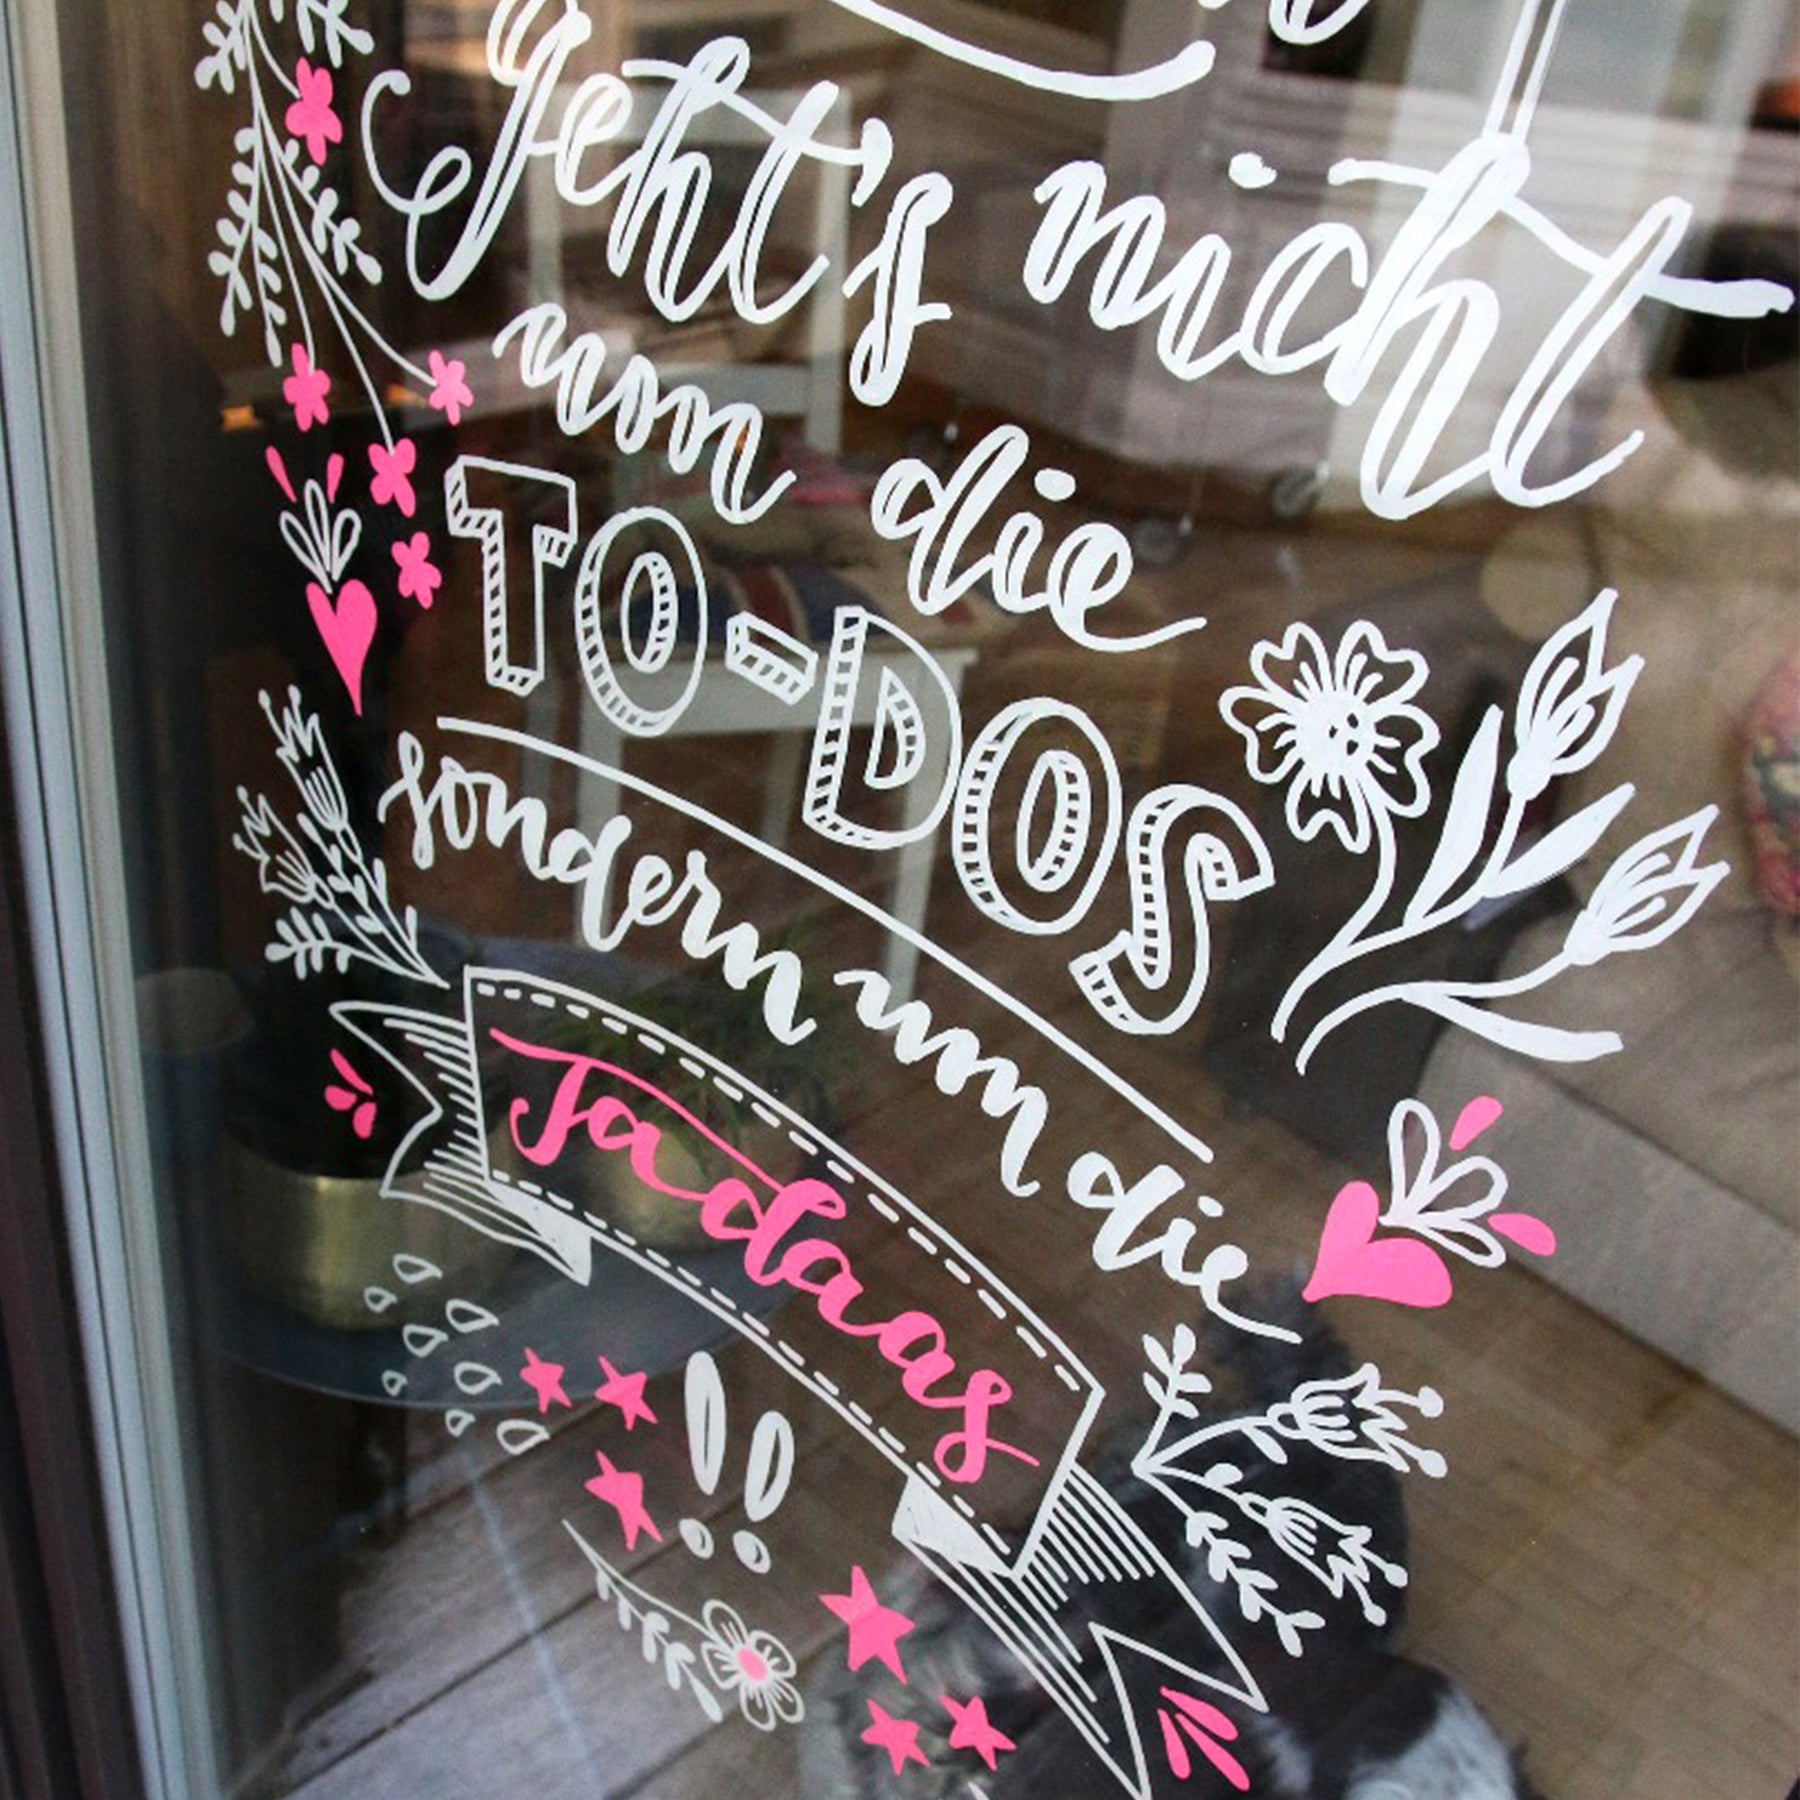 geht's nicht
um die
TO-DOS
sondern um die
Tadaas
!!